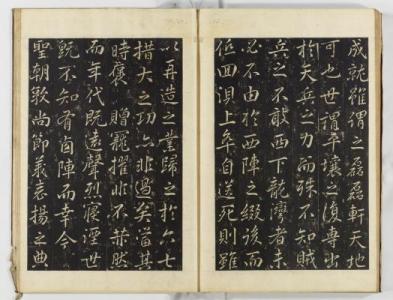 成就雖謂之磊磊軒天地
可也世謂平壤之復專出
於天兵之力而殊不知賊
兵之不敢西下龍灣者未
必不由於西陣之綴後而
低回浿上卒自送死則雖
以再造之業歸之於六七
措大之功亦非過矣當其
時褒 贈寵擢非不赫然
而年代旣遠聲烈寢湮世
旣不知有西陣而幸今
聖朝敦尚節義表揚之典